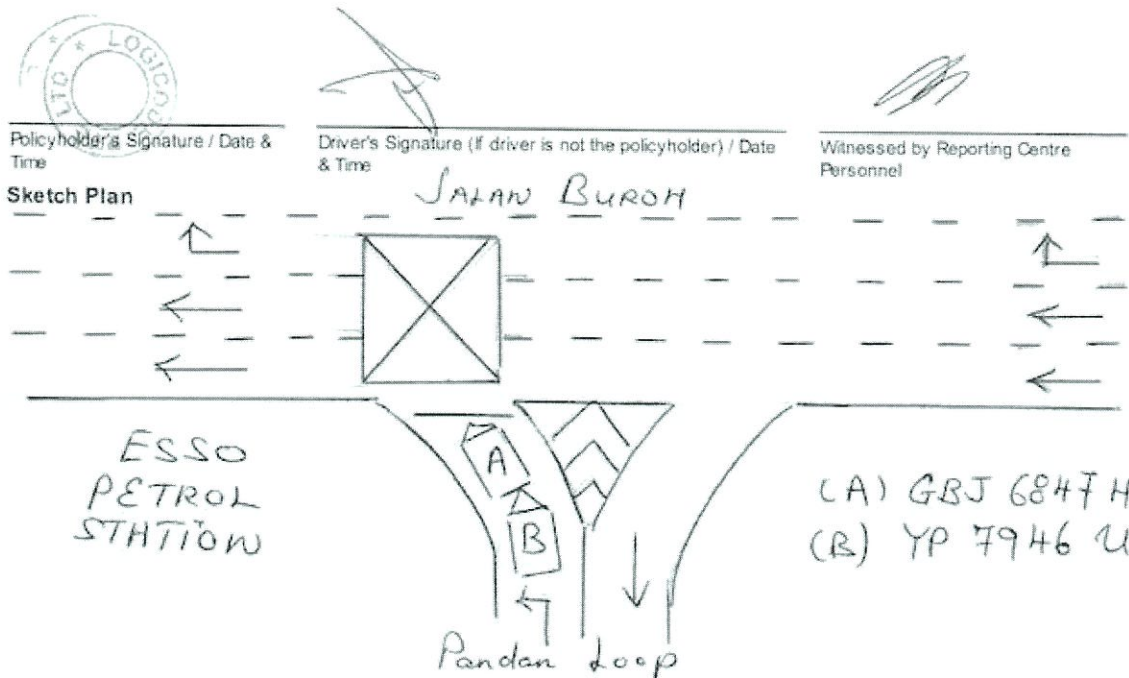 LTD * LOGICO
Policyholder's Signature / Date &
Time
Driver's Signature (If driver is not the policyholder) / Date
& Time
Witnessed by Reporting Centre
Personnel
Sketch Plan
JALAN BUROH
ESSO
PETROL
STATION
A
B
(A) GBJ 6847 H
(B) YP 7946 U
Pandan Loop